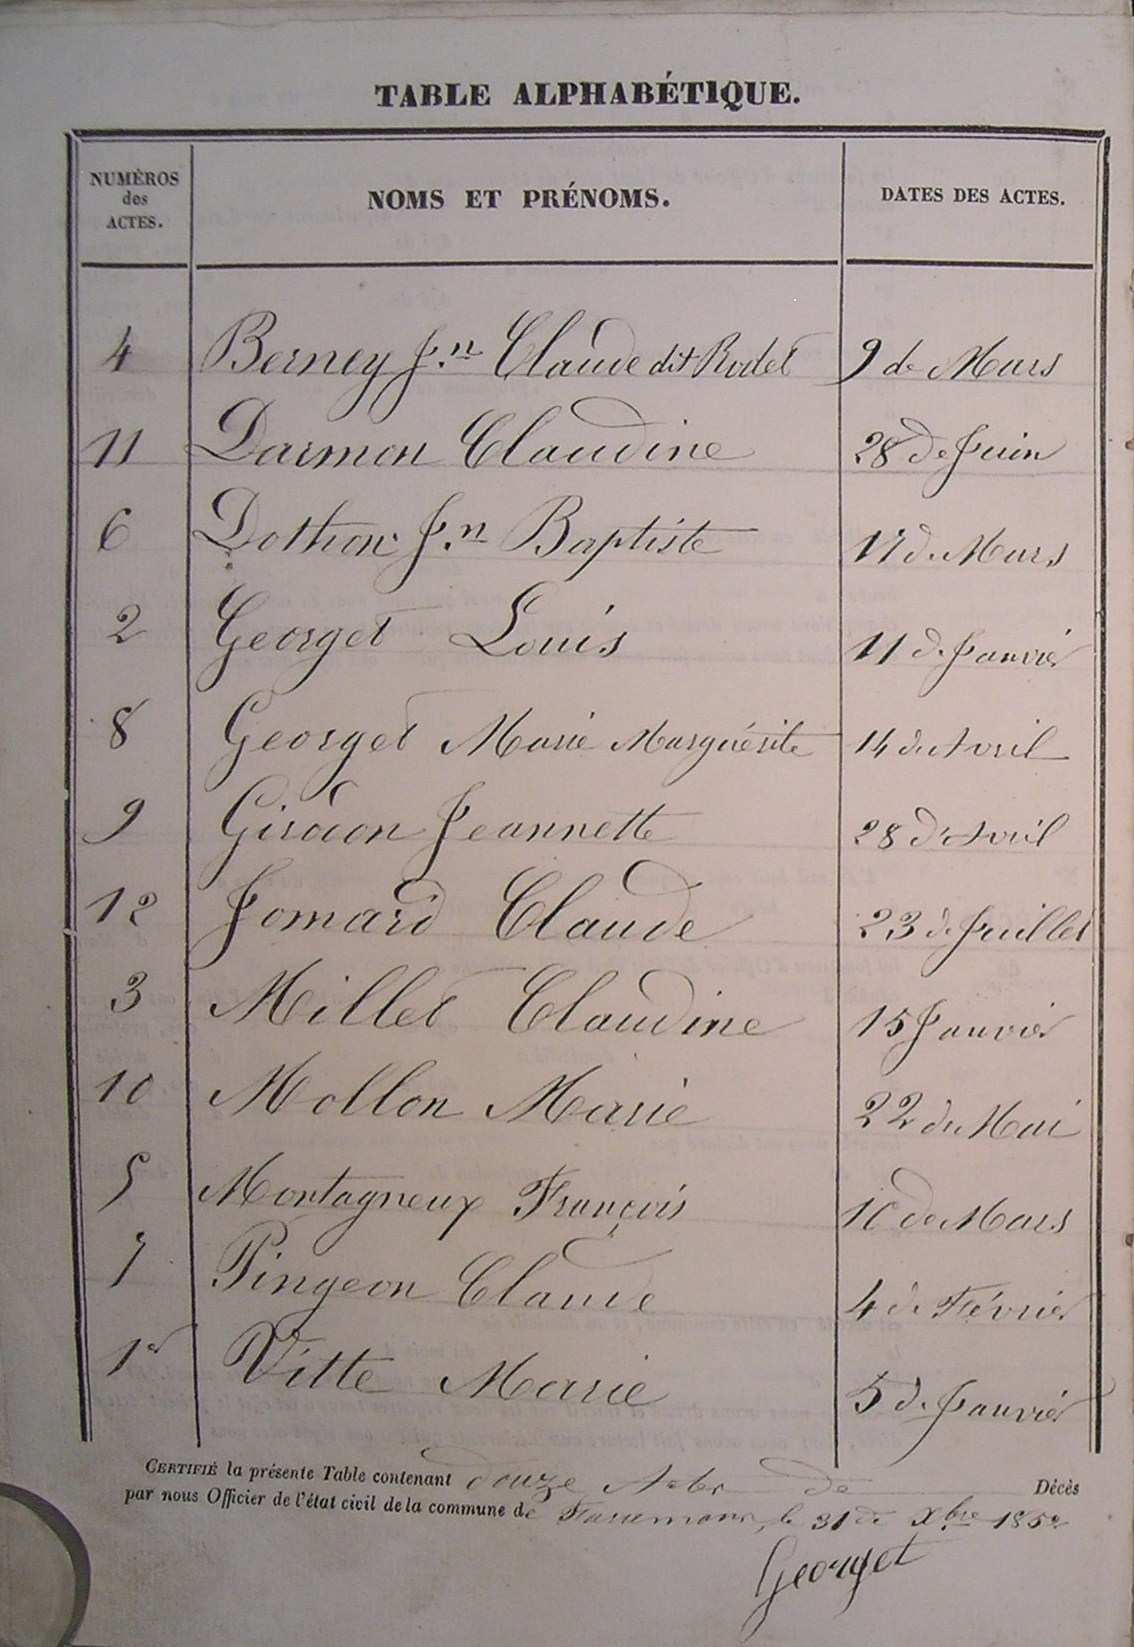 TABLE ALPHABÉTIQUE.
NUMÉROS des ACTES. NOMS ET PRÉNOMS. DATES DES ACTES.
4 Berney Jn Claude dit Rodet 9 de Mars
11 Darmon Claudine 28 de Juin
6 Dothon Jn Baptiste 17 de Mars
2 Georget Louis 11 de Janvier
8 Georget Marie Marguérite 14 de Avril
9 Girdon Jeannette 28 d'Avril
12 Jomard Claude 23 de Juillet
3 Millet Claudine 15 Janvier
10 Mollon Marie 22 de Mai
5 Montagneux François 10 de Mars
7 Pingeon Claude 4 de Février
1er Vitte Marie 5 de Janvier
CERTIFIÉ la présente Table contenant douze Actes de Décès
par nous Officier de l'état civil de la commune de Faramans, le 31 de Xbre
Georget